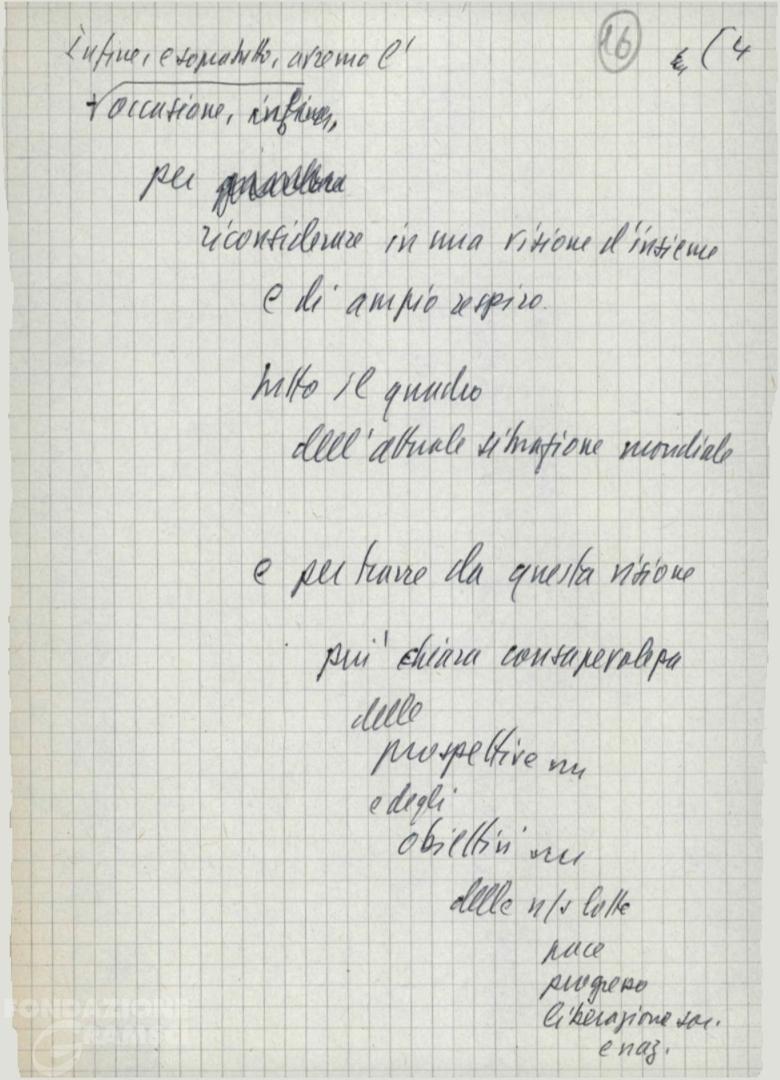 16
(4
Infine, e sopratutto, avremo l'
occasione, infine,
per
riconsiderare in una visione d'insieme
e di ampio respiro.
tutto il quadro
dell'attuale situazione mondiale
e per trarre da questa visione
più chiara consapevolezza
delle
prospettive
e degli
obiettivi
delle n/s lotte
pace
progresso
liberazione soc.
e naz.
FONDAZIONE
GRAMSCI